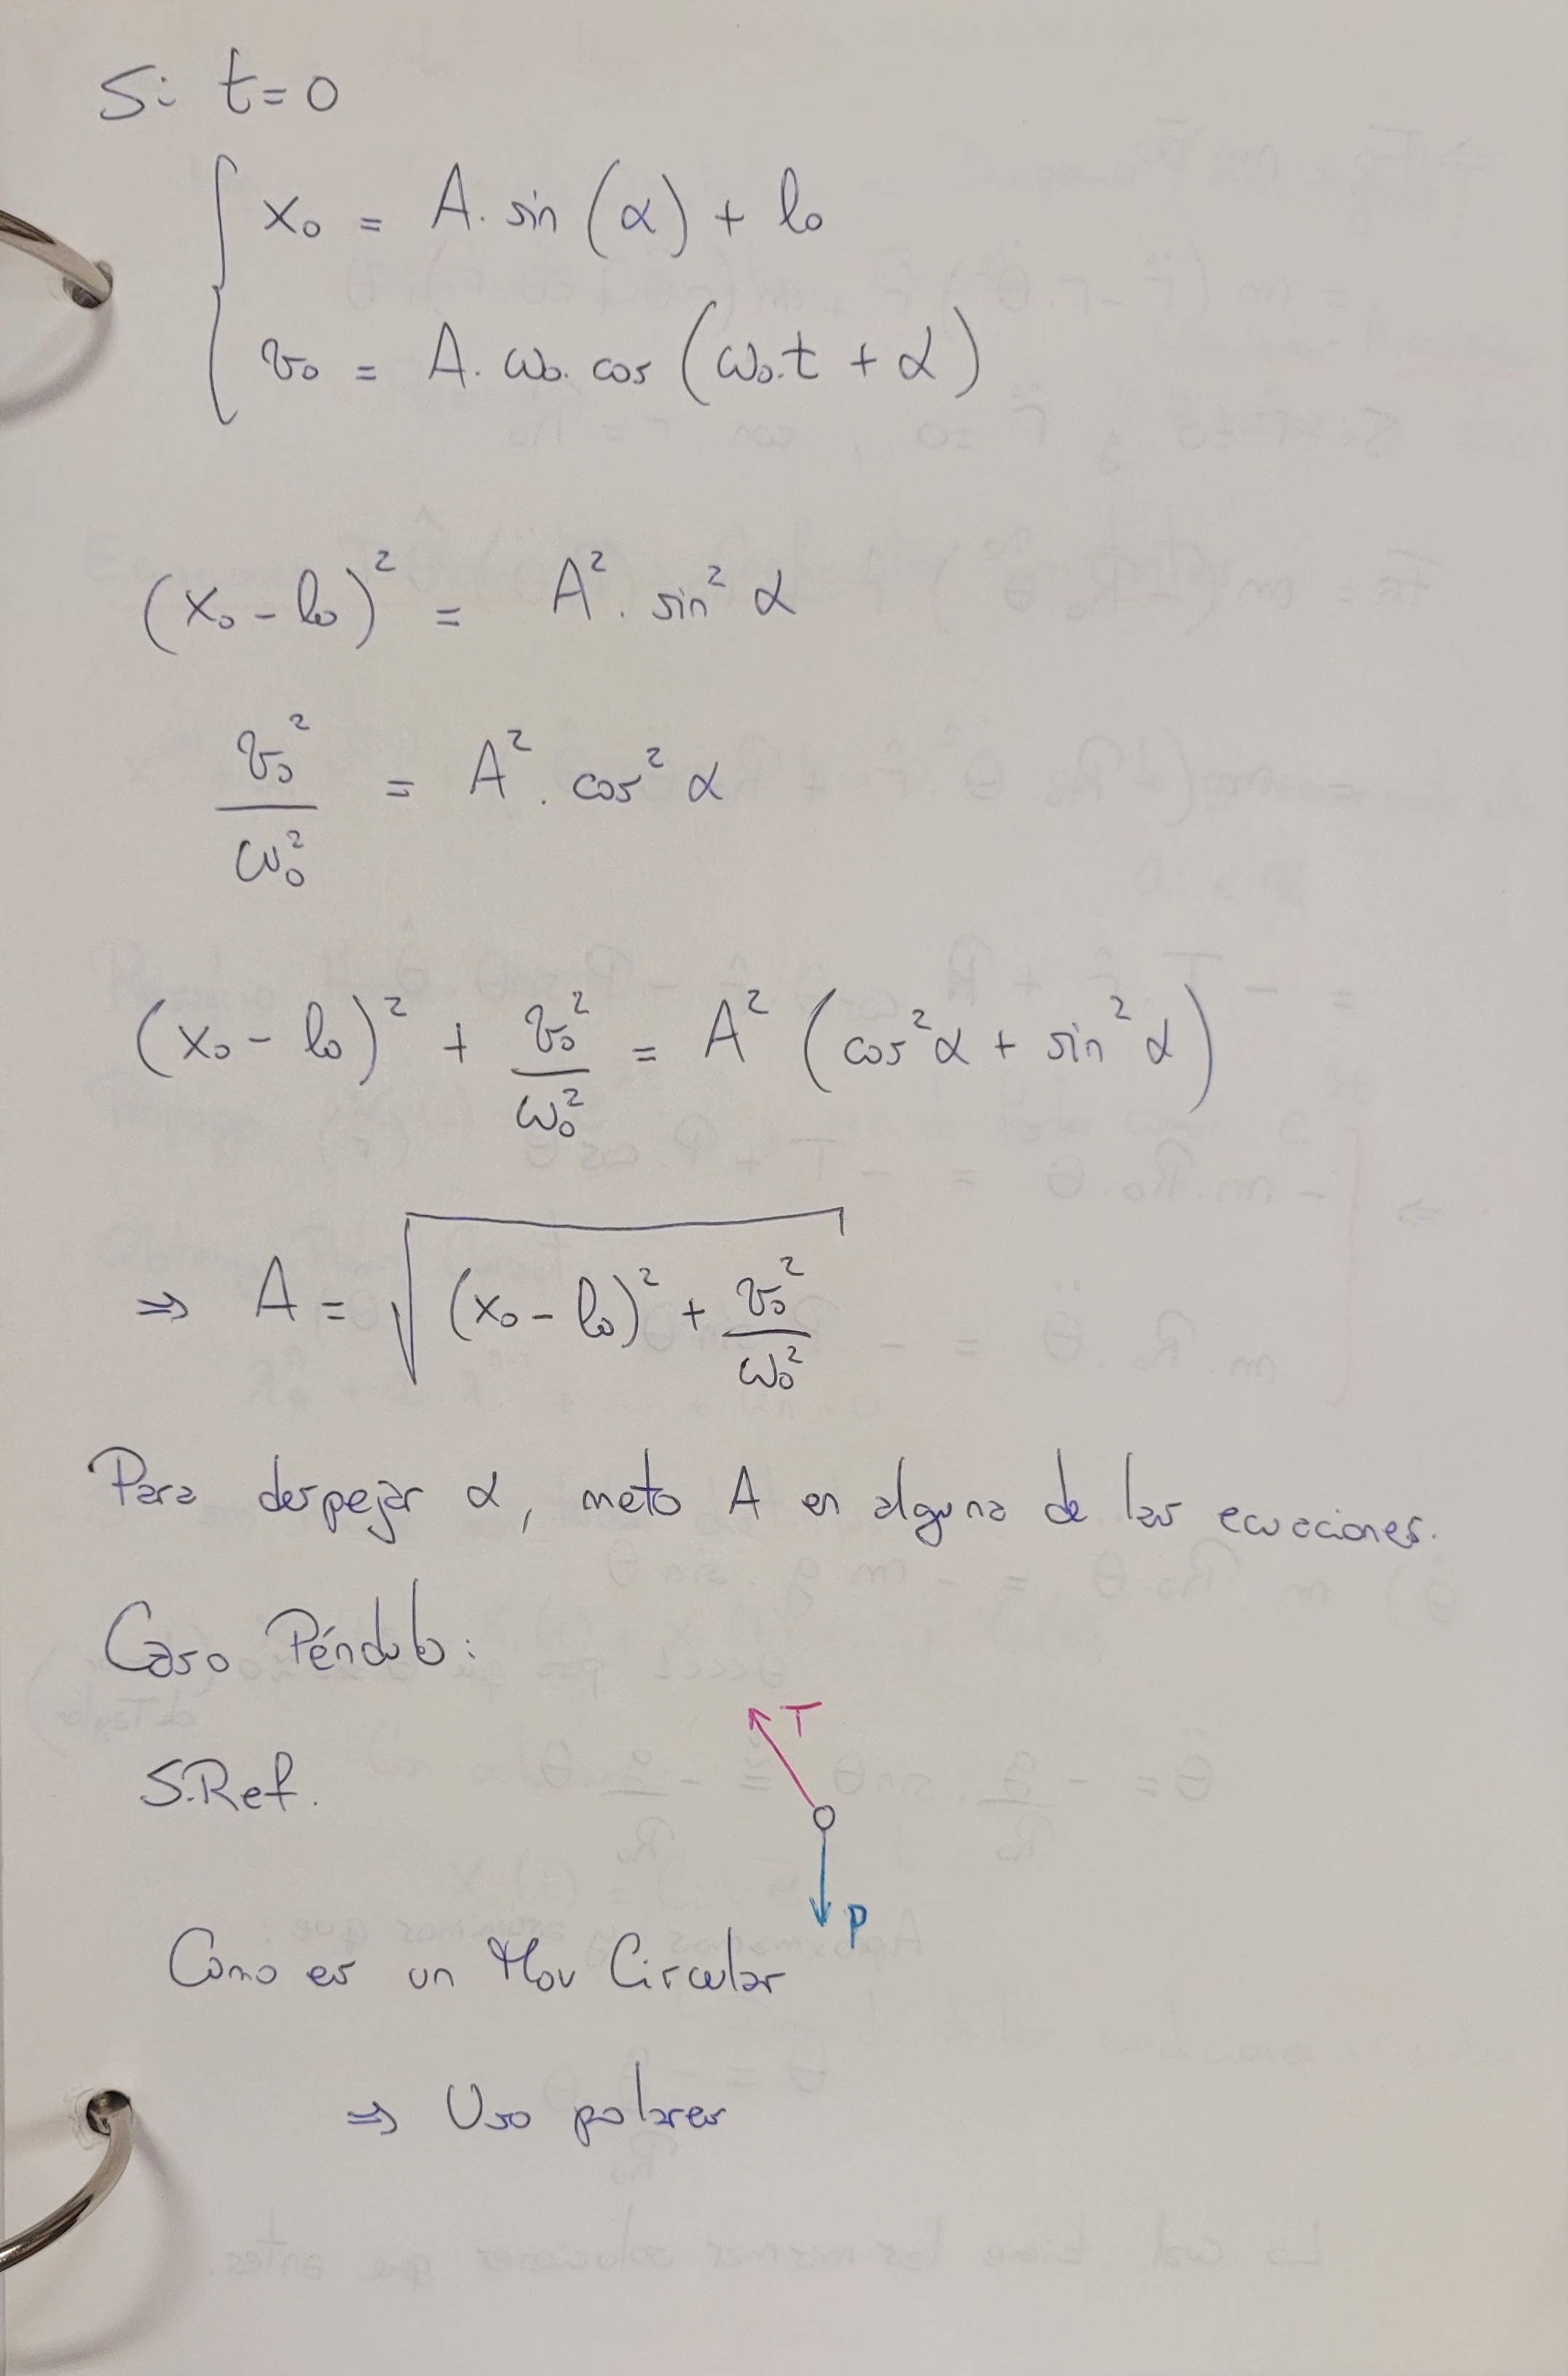 Si t=0
x₀ = A. sin (α) + l₀
v₀ = A. ω₀. cos (ω₀.t + α)
(x₀ - l₀)² = A² . sin² α
v₀² / ω₀² = A² . cos² α
(x₀ - l₀)² + v₀² / ω₀² = A² (cos² α + sin² α)
⇒ A = √((x₀ - l₀)² + v₀² / ω₀²)
Para despejar α, meto A en alguna de las ecuaciones.
Caso Péndulo:
T
S.Ref.
P
Como es un Mov Circular
⇒ Uso polares